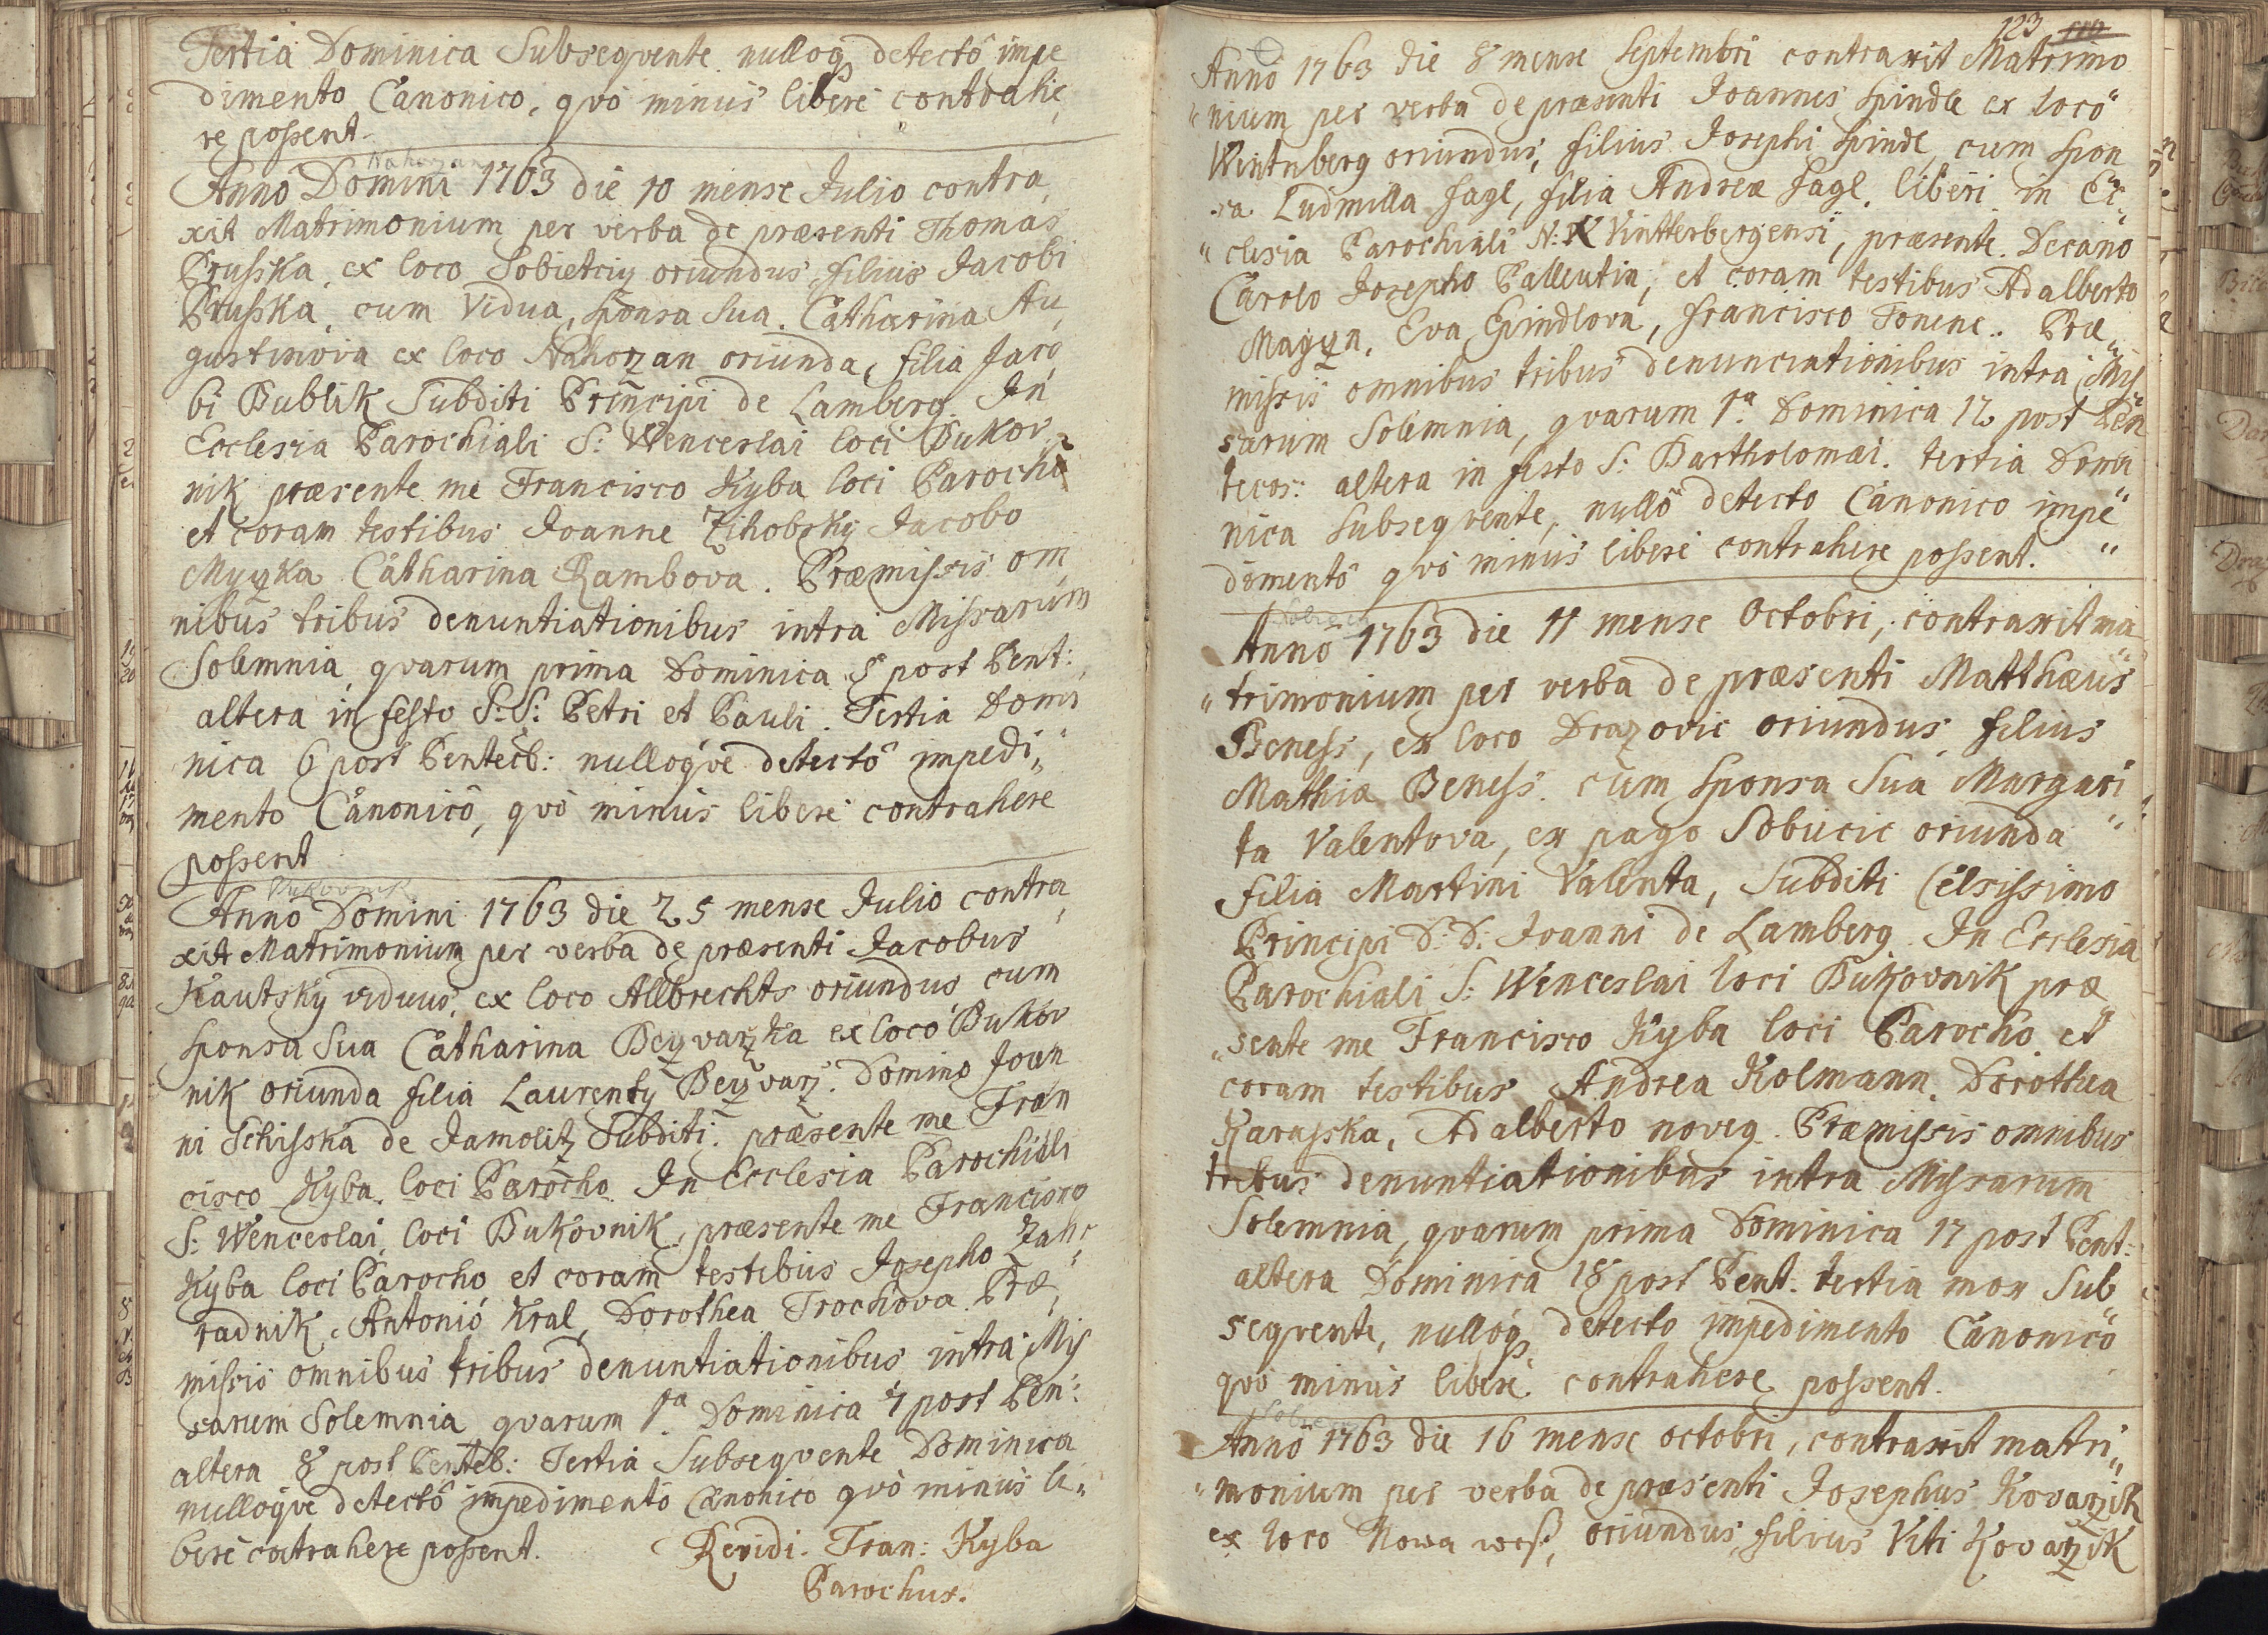 Tertia Dominica Subseqvente nulloq detectô impe
dimento Canonico, qvò minus liberè contrahe,
re possent.
Nahorzan
Anno Domini 1763 die 10 mense Julio contra,
xit Matrimonium per verba de præsenti Thomas
Prusska ex loco Sobietciy oriundus, filius Jacobi
Prusska, cum Vidua, sponsa Sua. Catharina Au,
gustinova ex loco Nahorzan oriunda, filia Jaco,
bi Bublik Subditi Principi de Lamberg. In
Ecclesia Parochiali S: Wenceslai loci Bukov,
nik præsente me Francisco Kyba loci Parocho
et coram testibus Joanne Zihobsky Jacobo
Myczka Catharina Rambova. Præmissis om
nibus tribus denuntiationibus intra Missarum
Solemnia, qvarum prima Dominica 5 post Pent:
altera in festo S:S: Petri et Pauli. Tertia Domi
nica 6 post Pentecb: nulloqve detectô impedi„
mento Canonicô, qvò minùs liberè contrahere
possent
Bukovnik
Anno Domini 1763 die 25 mense Julio contra,
xit Matrimonium per verba de præsenti Jacobus
Kautsky viduus, ex loco Allbrechts oriundus cum
sponsa Sua Catharina Beyvarzka ex loco Bukov
nik oriunda filia Laurenty Beyvarz. Domino Joan
ni Schisska de Jamolitz Subditi. præsente me Fran
cisco Kyba loci Parocho In Ecclesia Parochiali
S: Wenceslai loci Bukovnik, præsente me Francisco
Kyba loci Parocho et coram testibus Josepho Zah,
radnik, Antonió Kral, Dorothea Trochova. Præ,
missis omnibus tribus denuntiationibus intra Mis
sarum Solemnia qvarum 1a Dominica 7 post Pen:
altera 8 post Penteb: Tertia Subseqvente Dominica
nulloqve detectô impedimentô Canonico qvò minùs li„
berè cntrahere possent.
Revidi. Fran: Kyba
Parochus.
123
Anno 1763 die 8 mense Septembri contraxit Matrimo
„nium per verba de præsenti Joannes Spindle ex loco"
Wintnberg oriundus, filius Josephi Spindl, cum Spon
sa Ludmilla Fagl, filia Andreæ Fagl. liberi in Ec„
„clesia Parochiali N: K Vintterbergensi, præsente Decano
Carolo Josepho Palleutin, et coram testibus Adalberto
Magyn, Eva Spindlova, Francisco Tonene. Præ„
missis omnibus tribus denunciationibus intra Mis
sarum Solemnia, qvarum 1a Dominica 12 post Pen
tecos: altera in festo S: Bartholomæi. tertia Domi
nica Subseqvente, nullô detecto Canonico impe"
dimentô qvò minùs liberè contrahere possent. "
Anno 1763 die 11 mense Octobri, contraxit ma
„trimonium per verba de præsenti Matthæus
Beness, ex loco Drazovic oriundus filius
Mathiæ Beness. cum Sponsa Sua Margari
ta Valentova, ex pago Sobucic oriunda "
filia Martini Valenta, Subditi Celsissimo
Principi D: D: Joanni de Lamberg. In Ecclesia
Parochiali S: Wenceslai loci Bukovnik præ
„sente me Francisco Kyba loci Parocho et
coram testibus Andrea Kolmann. Dorothea
Karasska, Adalberto noveg. Præmissis omnibus
tribus denuntiationibus intra Missarum
Solemnia, qvarum prima Dominica 17 post Pent:
altera Dominica 18 post Pent. tertia mox Sub
seqvente, nulloq detecto impedimento Canonicô
qvò minùs liberè contrahere possent.
Anno 1763 die 16 mense octobri, contraxit matri„
„monium per verba de præsenti Josephus Kovarzik
ex loco Nowa wess, oriundus, filius Viti Kovarzik